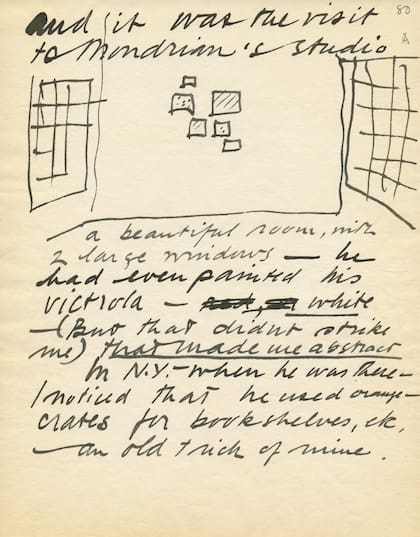 80
A
and it was the visit
to Mondrian's studio
a beautiful room, with
2 large windows — he
had even painted his
victrola — white
— (But that didn't strike
me) that made me abstract
In N.Y. – when he was there –
I noticed that he used orange-
crates for bookshelves, etc,
— an old trick of mine.